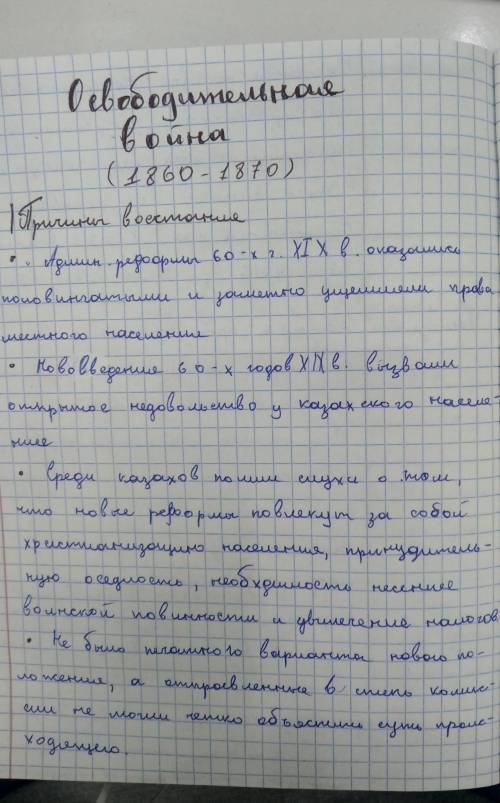 Освободительная
война
(1860-1870)
Причины восстания
• Админ. реформы 60-х г. XIX в. оказались
половинчатыми и заметно ущемляли права
местного населения
• Нововведение 60-х годов XIX в. вызвали
открытое недовольство у казахского населе-
ние
• Среди казахов пошли слухи о том,
что новые реформы повлекут за собой
христианизацию населения, принудитель-
ную оседлость, необхдимость несение
воинской повинности и увеличение налогов.
• Не было печатного варианта нового по-
ложения, а отправленные в степь комис-
сии не могли четко объяснить суть проис-
ходящего.